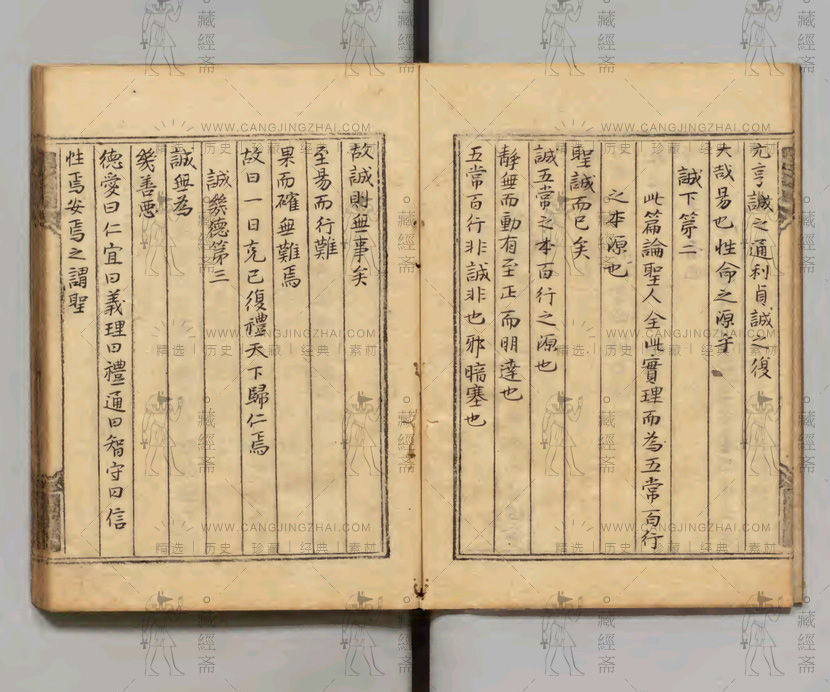 元亨誠之通利貞誠之復
大哉易也性命之源乎
誠下第二
此篇論聖人全此實理而為五常百行
之本源也
聖誠而已矣
誠五常之本百行之源也
靜無而動有至正而明達也
五常百行非誠非也邪暗塞也
故誠則無事矣
至易而行難
果而確無難焉
故曰一日克己復禮天下歸仁焉
誠幾德第三
誠無為
幾善惡
德愛曰仁宜曰義理曰禮通曰智守曰信
性焉安焉之謂聖
WWW.CANGJINGZHAI.COM
精选 | 历史 | 珍藏 | 经典 | 素材
藏經斋